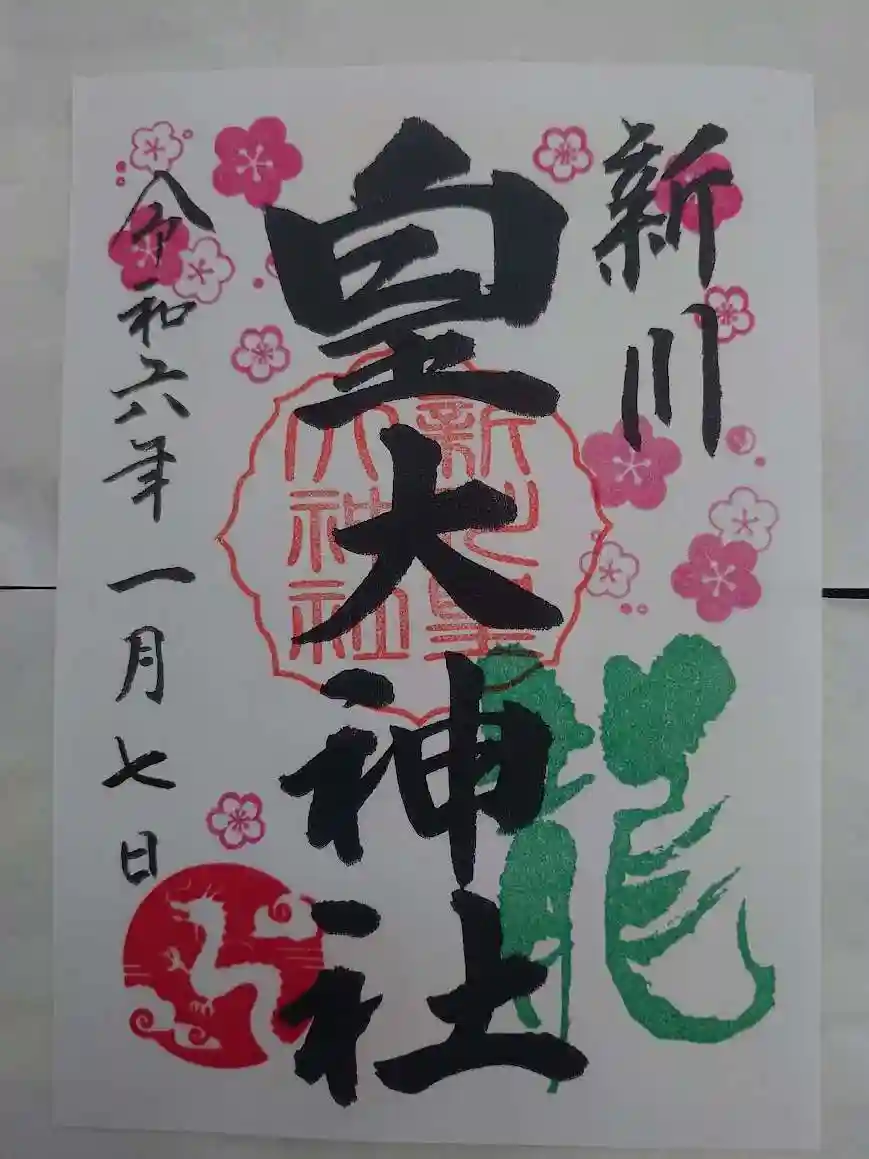 新川
皇大神社
新川皇
大神社
龍
令和六年一月七日